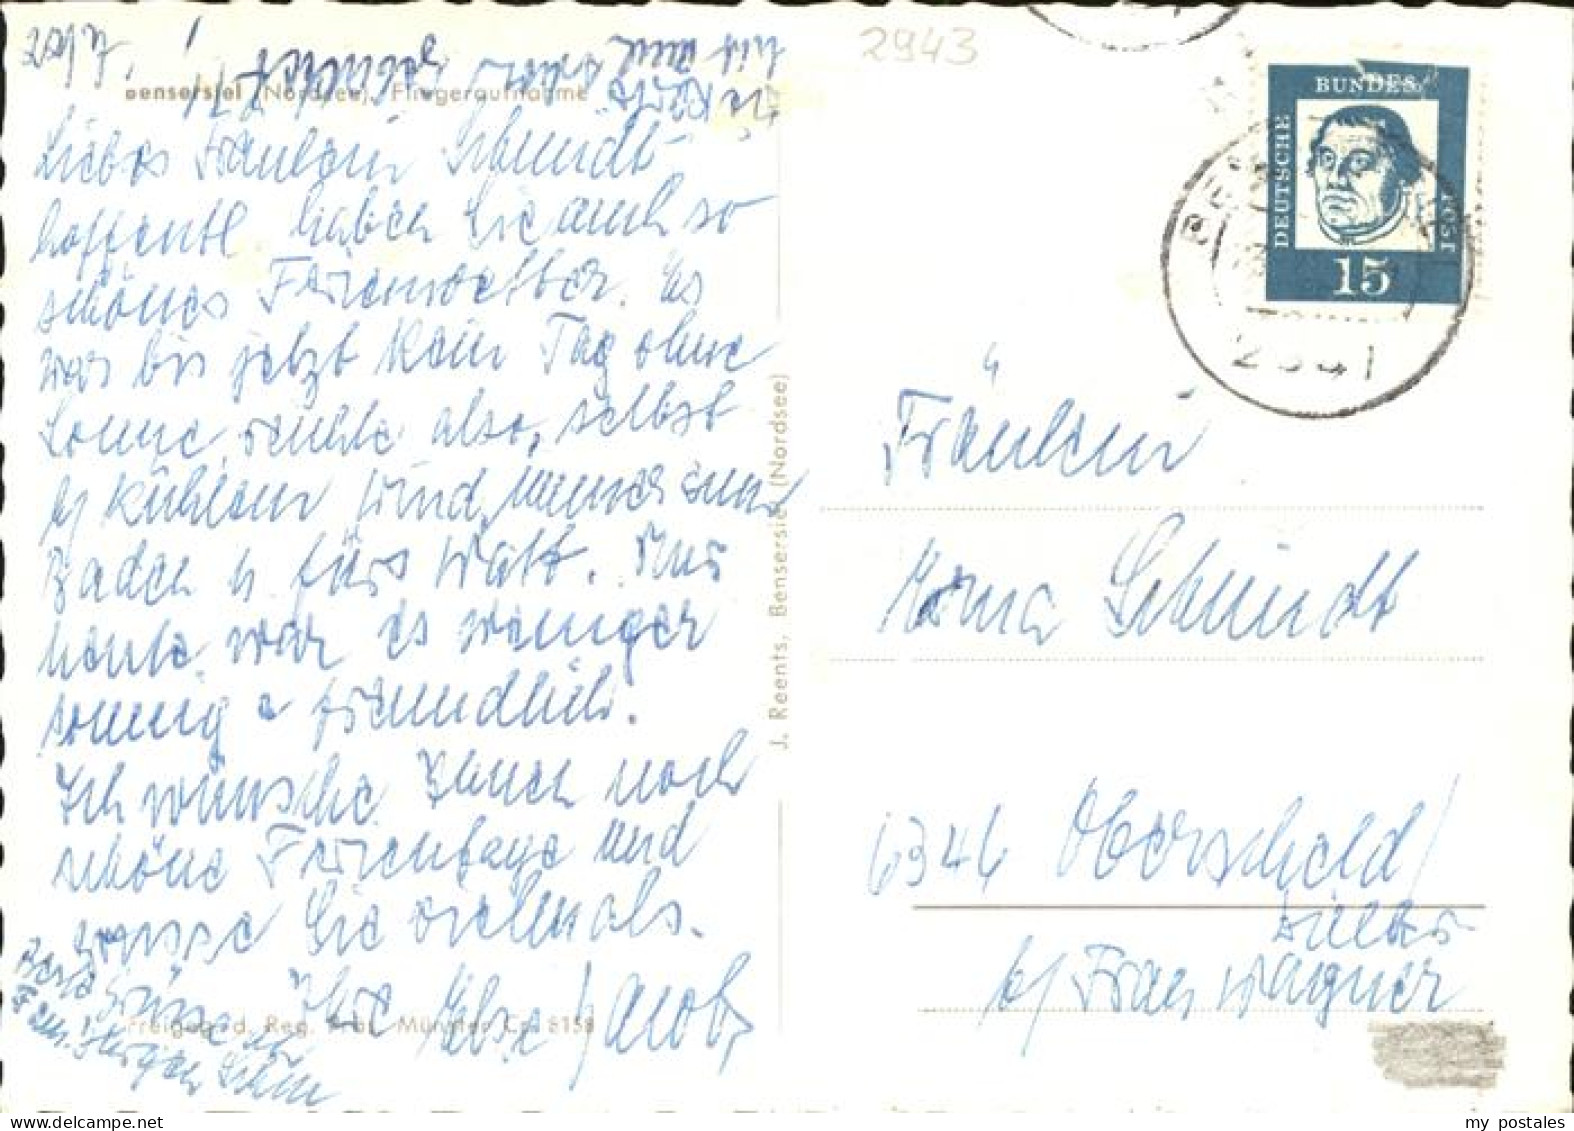 2943
Bensersiel (Nordsee), Fliegeraufnahme
Liebes Fräulein Schmidt
hoffentl. haben Sie auch so
schönes Ferienwetter. Es
war bis jetzt kein Tag ohne
Sonne, reichte also, selbst
b/ kühlem Wind, immer zum
Baden u. fürs Watt. Nur
heute war es weniger
sonnig u freundlich.
Ich wünsche Ihnen noch
schöne Ferientage und
grüsse Sie vielmals.
Ihre Else Jacobs
Freigeg. d. Reg. Präs. Münster Cp. 8158
J. Reents, Bensersiel (Nordsee)
DEUTSCHE
BUNDES
POST
15
2941
Fräulein
Erna Schmidt
6346 Oberscheld/
b/ Frau Wagner
my postales